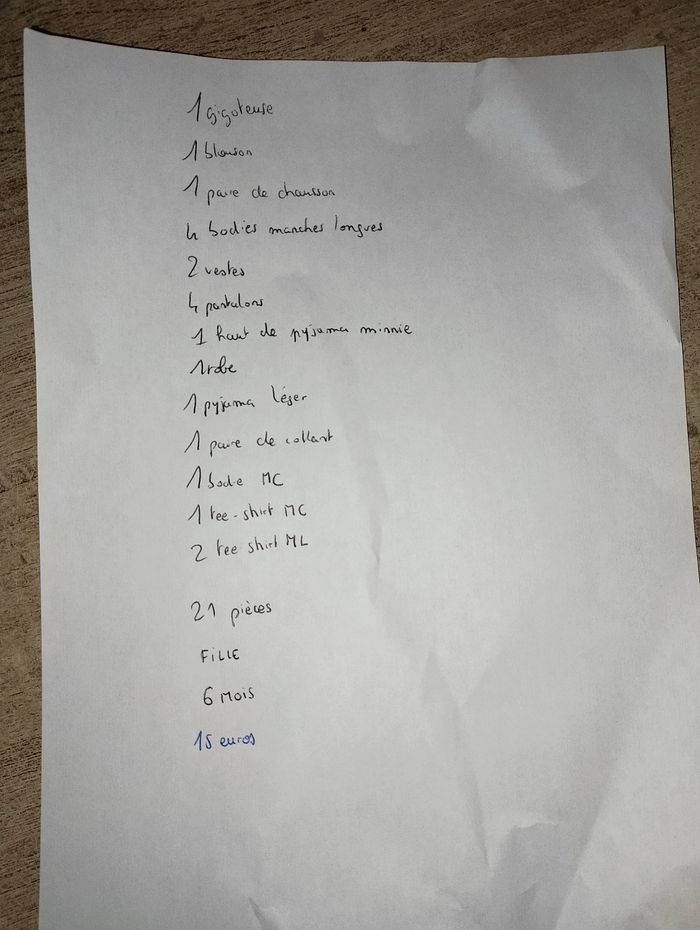 1 gigoteuse
1 blouson
1 paire de chausson
4 bodies manches longues
2 vestes
4 pantalons
1 haut de pyjama minnie
1 robe
1 pyjama léger
1 paire de collant
1 bodie MC
1 tee-shirt MC
2 tee shirt ML
21 pièces
FILLE
6 MOIS
15 euros